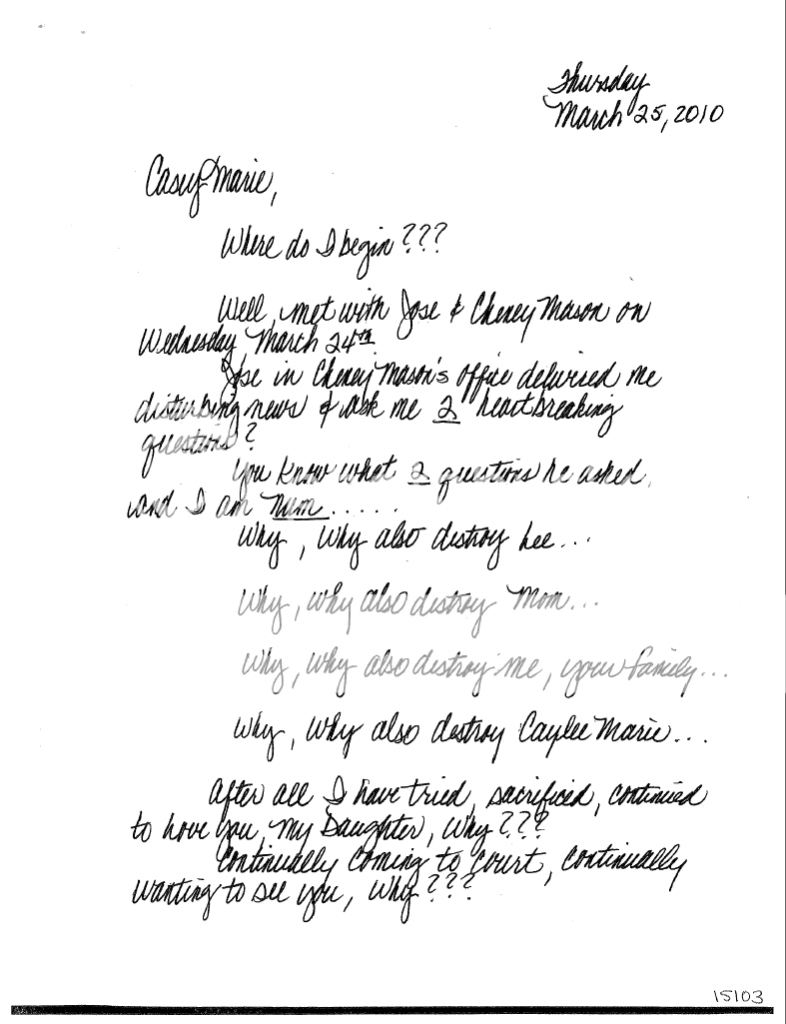 Thursday
March 25, 2010
Casey Marie,
Where do I begin???
Well, met with Jose & Cheney Mason on
Wednesday, March 24th
Jose in Cheney Mason's office delivried me
disturbing news & ask me 2 heartbreaking
questions?
You know what 2 questions he asked,
and I am num.....
Why, Why also destroy Lee...
Why, why also destroy Mom...
Why, why also destroy me, your family...
Why, Why also destroy Caylee Marie...
After all I have tried, sacrificed, continued
to love you, my Daughter, Why???
Continually coming to court, continually
wanting to see you, Why???
15103